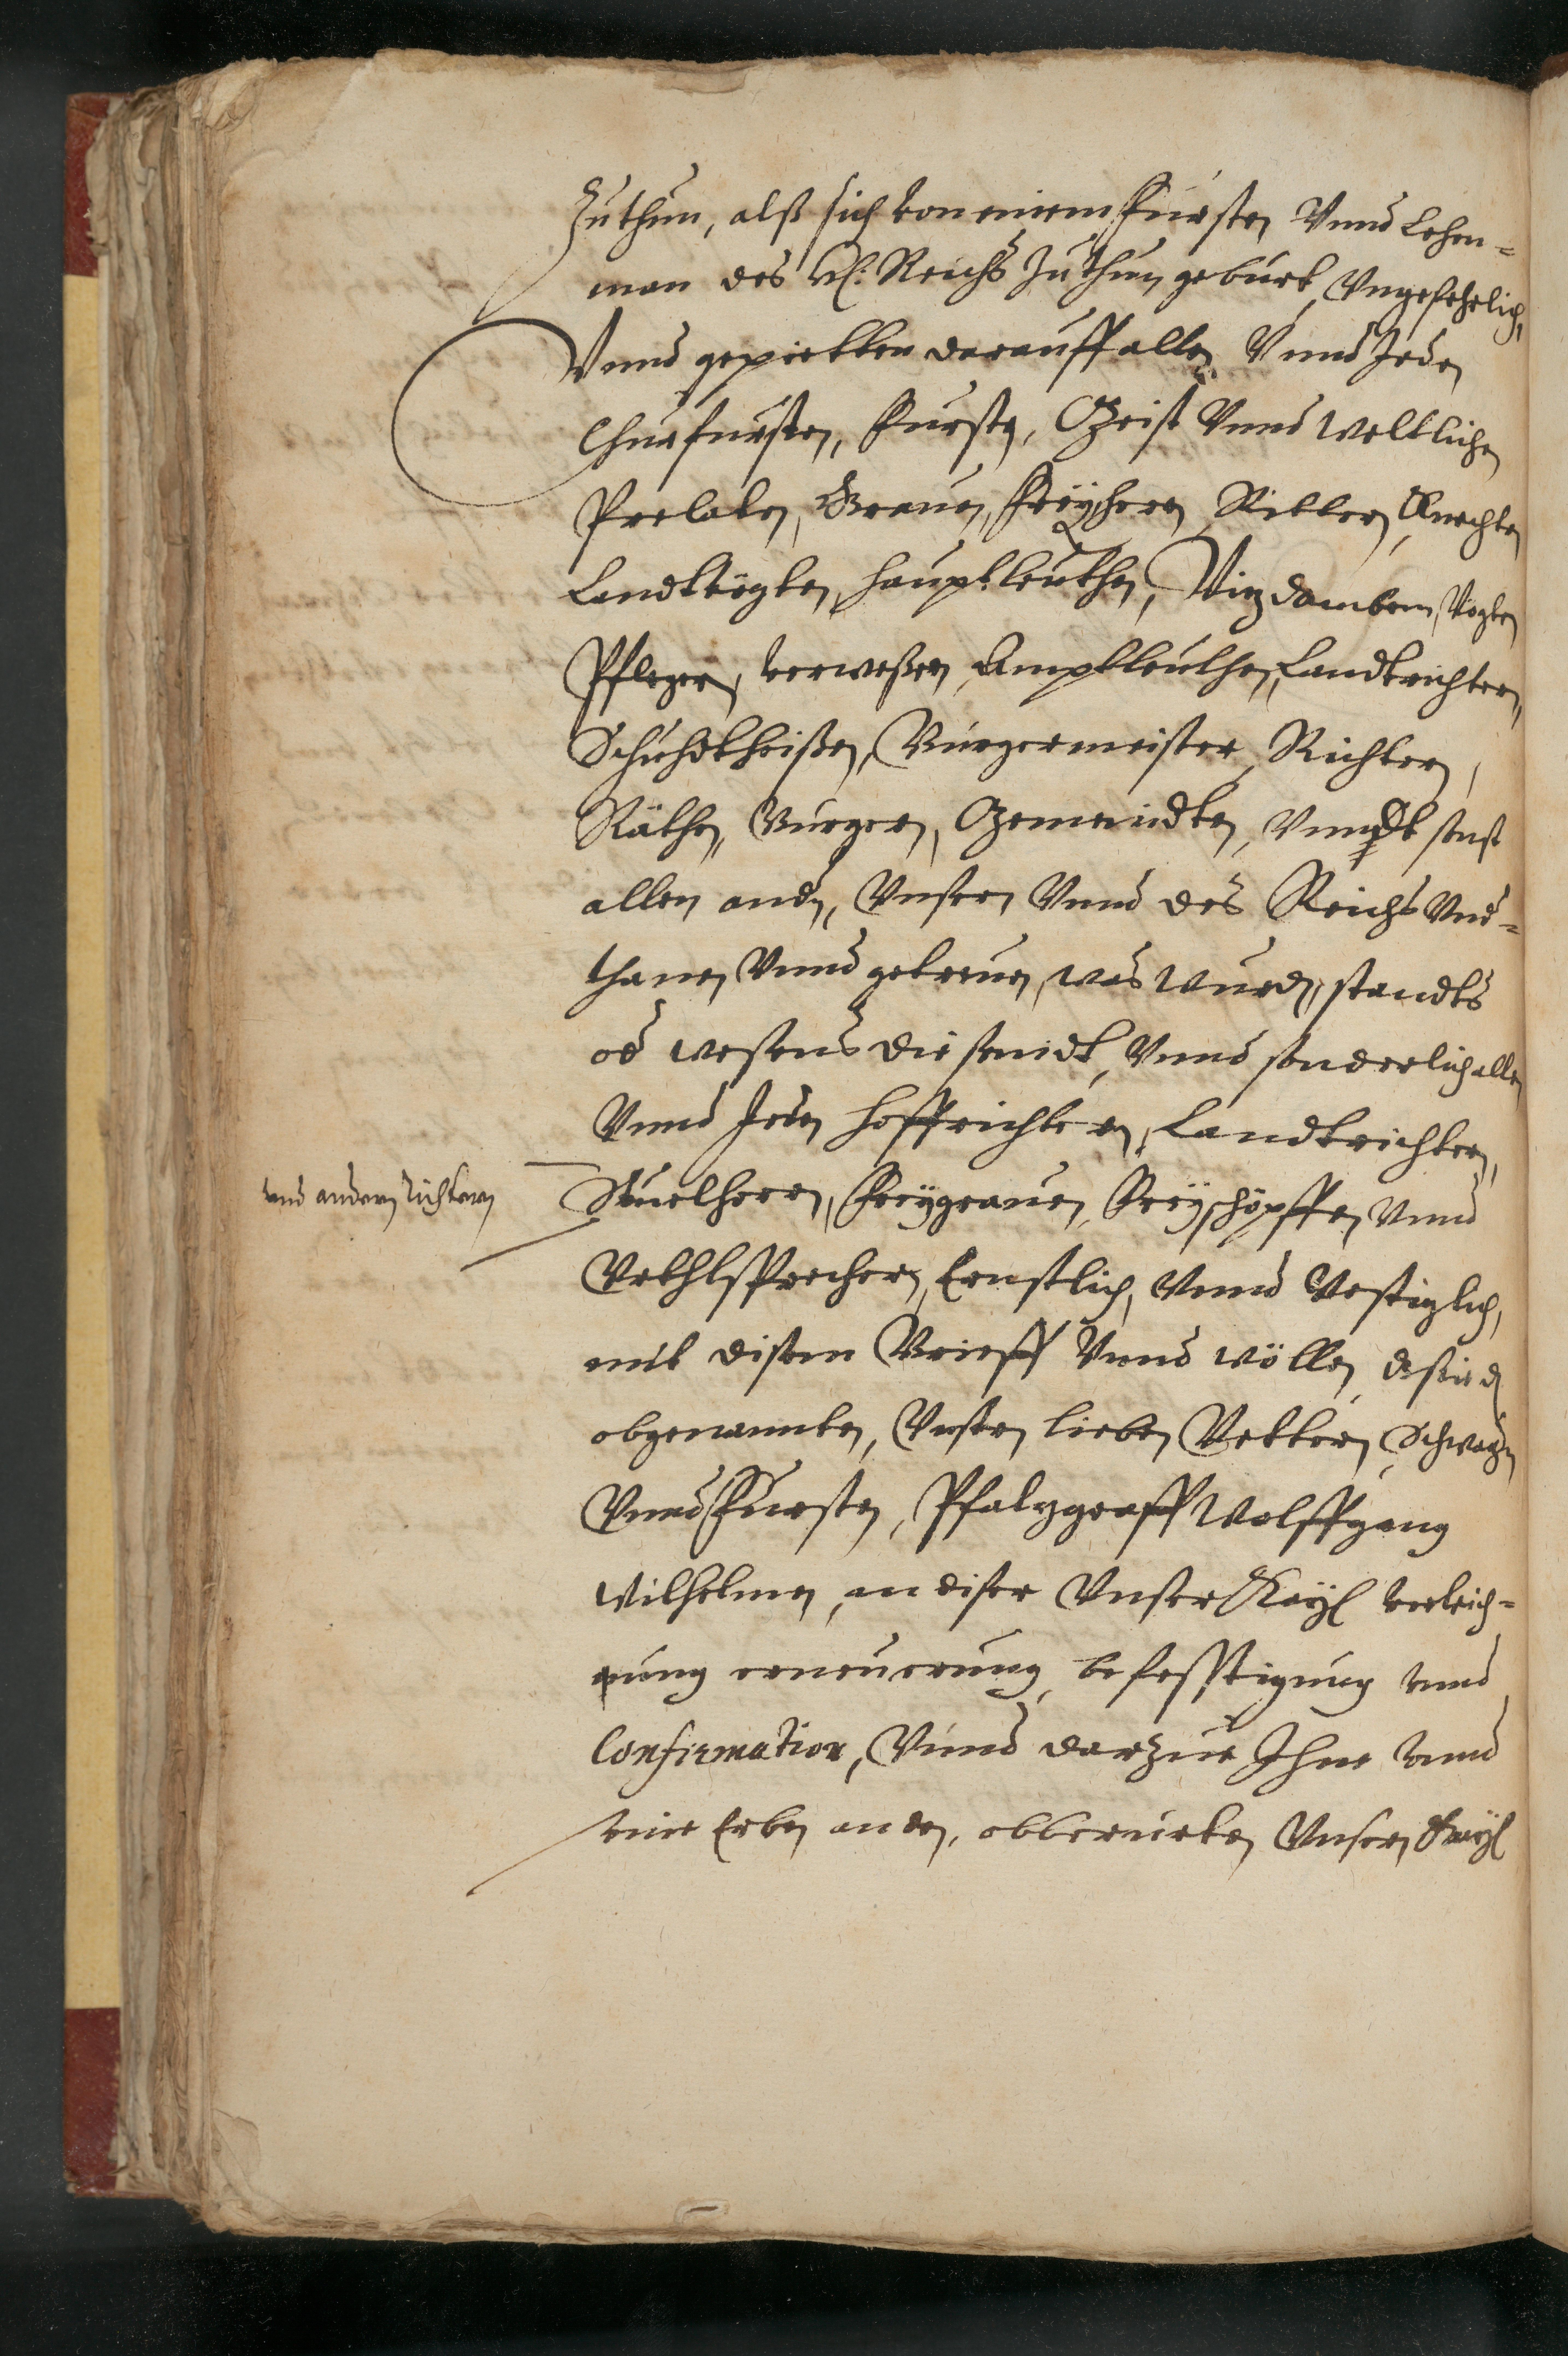 Zuthun, alß sich von einem Fursten Vnnd Lehen=
man des H: Reichs Zuthun geburt, Vngefehrlich,
Vnnd gepietten darauff allen Vnnd Jeden
Churfursten, Fursten, Geist Vnnd Weltlichen
Prelaten, Grauen, Freÿhern, Rittern, Knechten
Landtvögten, Hauptleuthen, Vizdomben, Vögten
Pflegern, verweßern, Amptleuthen, Landtrichtern,
Schuhdtheißen, Burgermeister, Richtern,
Räthen, Burgern, Gemeindten, Vnndt sonst
allen andn, Vnsern Vnnd des Reichs Vnd=
thanen Vnnd getreuen, was Wurden, standts
od wesens die seindt, Vnnd sonderlich allen
Vnnd Jeden Hoffrichtern, Landtrichtern,
und andern Richtern
Stuelherrn, Freÿgrauen, Freÿschöpffen Vnnd
Vrthlsprechern, Ernstlich, Vnnd Vestiglich,
mit disem Brieff Vnnd wöllen, dß sie dn
obgenannten, Vnsern lieben Vettern, Schwagern
Vnnd Fursten, Pfalzgraff Wolffgang
Wilhelmen, an diser Vnser Kaÿl verleich=
nung erneuerung, befesstigung vnnd
Confirmation, Vnnd darzue Ihne vnnd
seine Erben an den, obberurten Vnsern Kaÿl